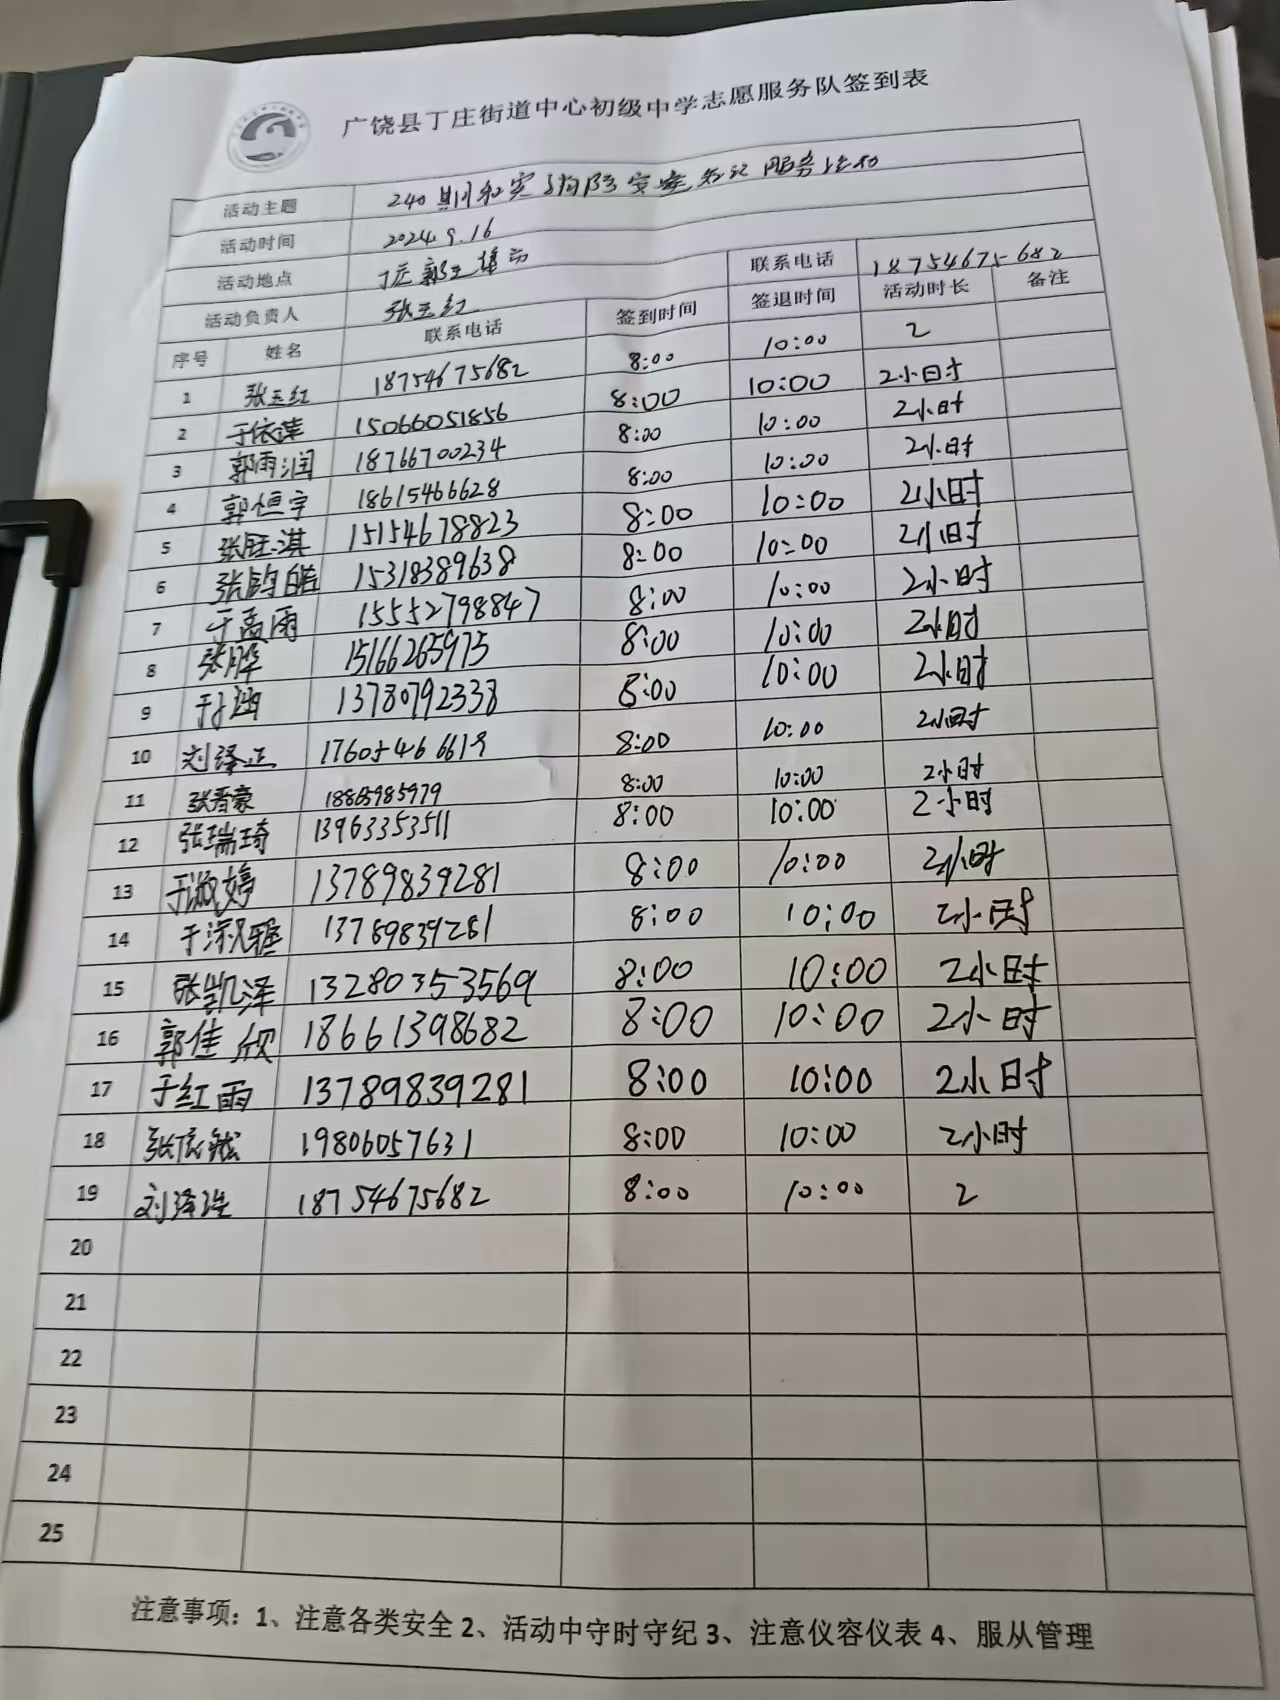 广饶县丁庄街道中心初级中学志愿服务队签到表
活动主题 240期和实消防安全 服务活动
活动时间 2024.9.16
活动地点 丁庄郭王 联系电话 18754675682
活动负责人 张玉红 签到时间 签退时间 活动时长 备注
序号 姓名 联系电话
1 张玉红 18754675682 8:00 10:00 2
2 于依萍 15066051856 8:00 10:00 2小时
3 郭雨润 18766700234 8:00 10:00 2小时
4 郭恒宇 18615466628 8:00 10:00 2小时
5 张钰淇 15154678823 8:00 10:00 2小时
6 张钧皓 15318389638 8:00 10:00 2小时
7 于孟雨 15552798847 8:00 10:00 2小时
8 张骅 15166265975 8:00 10:00 2小时
9 于涵 13780792338 8:00 10:00 2小时
10 刘泽正 17605466619 8:00 10:00 2小时
11 张晋豪 18865985979 8:00 10:00 2小时
12 张瑞琦 13963353511 8:00 10:00 2小时
13 于淑婷 13789839281 8:00 10:00 2小时
14 于淑雅 13789839281 8:00 10:00 2小时
15 张凯泽 13280353569 8:00 10:00 2小时
16 郭佳欣 18661398682 8:00 10:00 2小时
17 于红雨 13789839281 8:00 10:00 2小时
18 张依 19806057631 8:00 10:00 2小时
19 刘泽 18754675682 8:00 10:00 2
20
21
22
23
24
25
注意事项：1、注意各类安全 2、活动中守时守纪 3、注意仪容仪表 4、服从管理